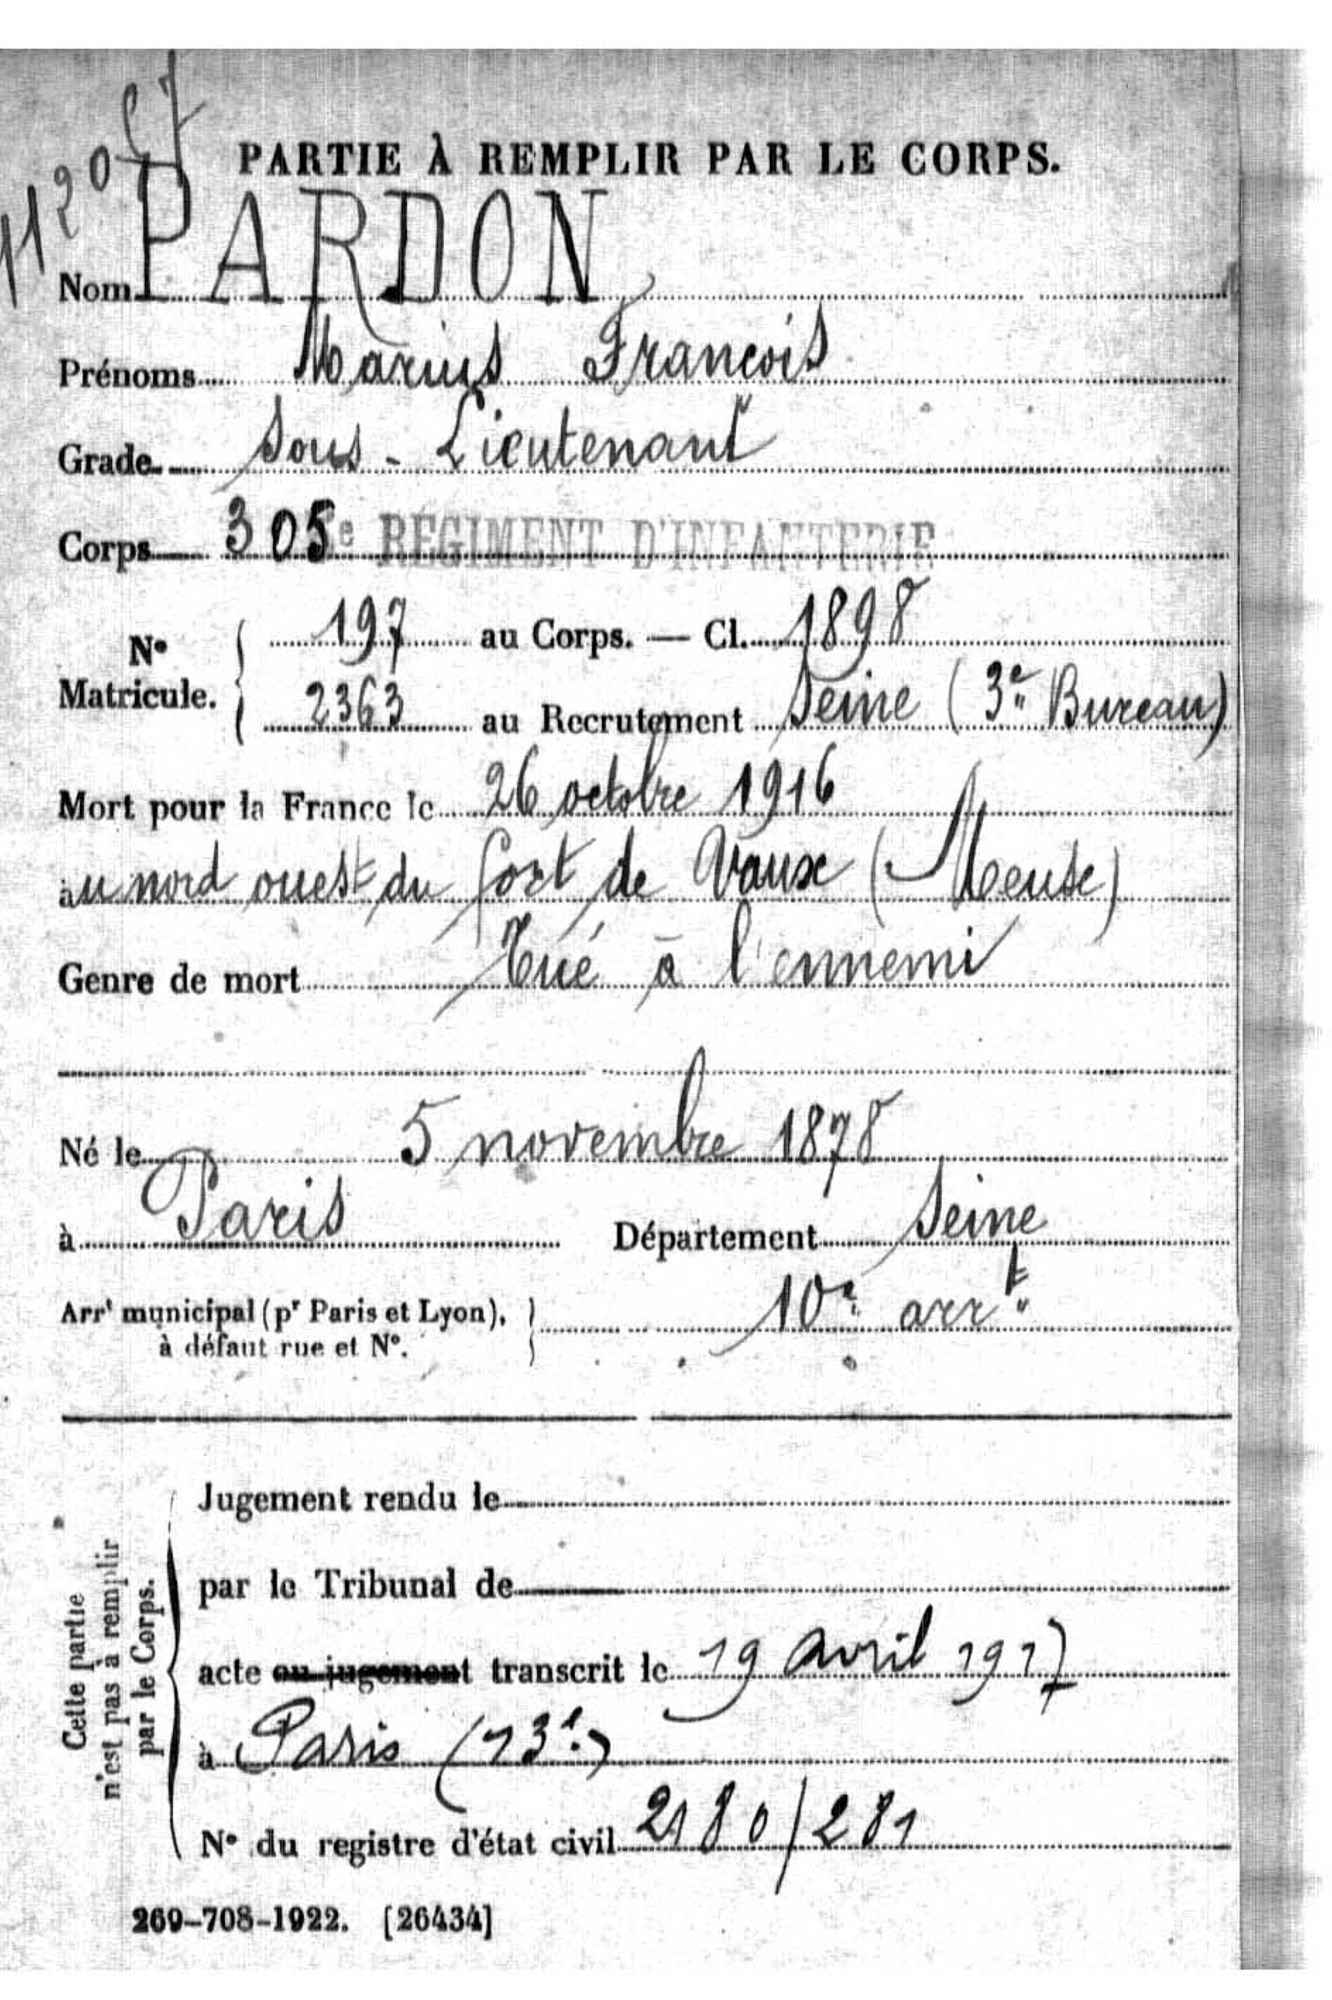 PARTIE À REMPLIR PAR LE CORPS.
Nom PARDON
Prénoms Marius François
Grade Sous-Lieutenant
Corps 305e RÉGIMENT D'INFANTERIE
N° Matricule. { 197 au Corps. — Cl. 1898
2363 au Recrutement Seine (3e Bureau)
Mort pour la France le 26 octobre 1916
àu nord ouest du fort de Vaux (Meuse)
Genre de mort Tué à l'ennemi
Né le 5 novembre 1878
à Paris Département Seine
Arrt municipal (pr Paris et Lyon), } 10e arrt
à défaut rue et N°.
Cette partie
n'est pas à remplir
par le Corps.
Jugement rendu le
par le Tribunal de
acte ou jugement transcrit le 19 avril 1917
à Paris (13e)
N° du registre d'état civil 2180/281
269-708-1922. [26434]